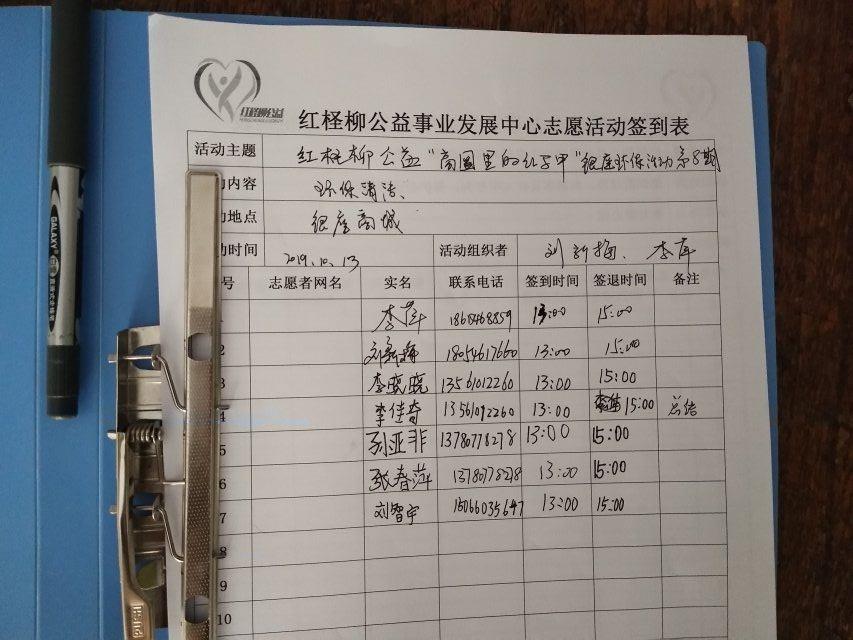 红柽柳公益
红柽柳公益事业发展中心志愿活动签到表
活动主题 红柽柳公益"商圈里的红马甲"银座环保活动第8期
内容 环保清洁、
地点 银座商城
时间 2019.10.13 活动组织者 刘新梅、李萍
号 志愿者网名 实名 联系电话 签到时间 签退时间 备注
李萍 1868468859 13:00 15:00
2 刘新梅 18054617660 13:00 15:00
3 李晓晓 13561012260 13:00 15:00
4 李佳奇 13561092260 13:00 15:00 总结
5 孙亚非 13780778278 13:00 15:00
6 张春萍 13780778278 13:00 15:00
7 刘智宇 15066035647 13:00 15:00
8
9
10
GALAXY